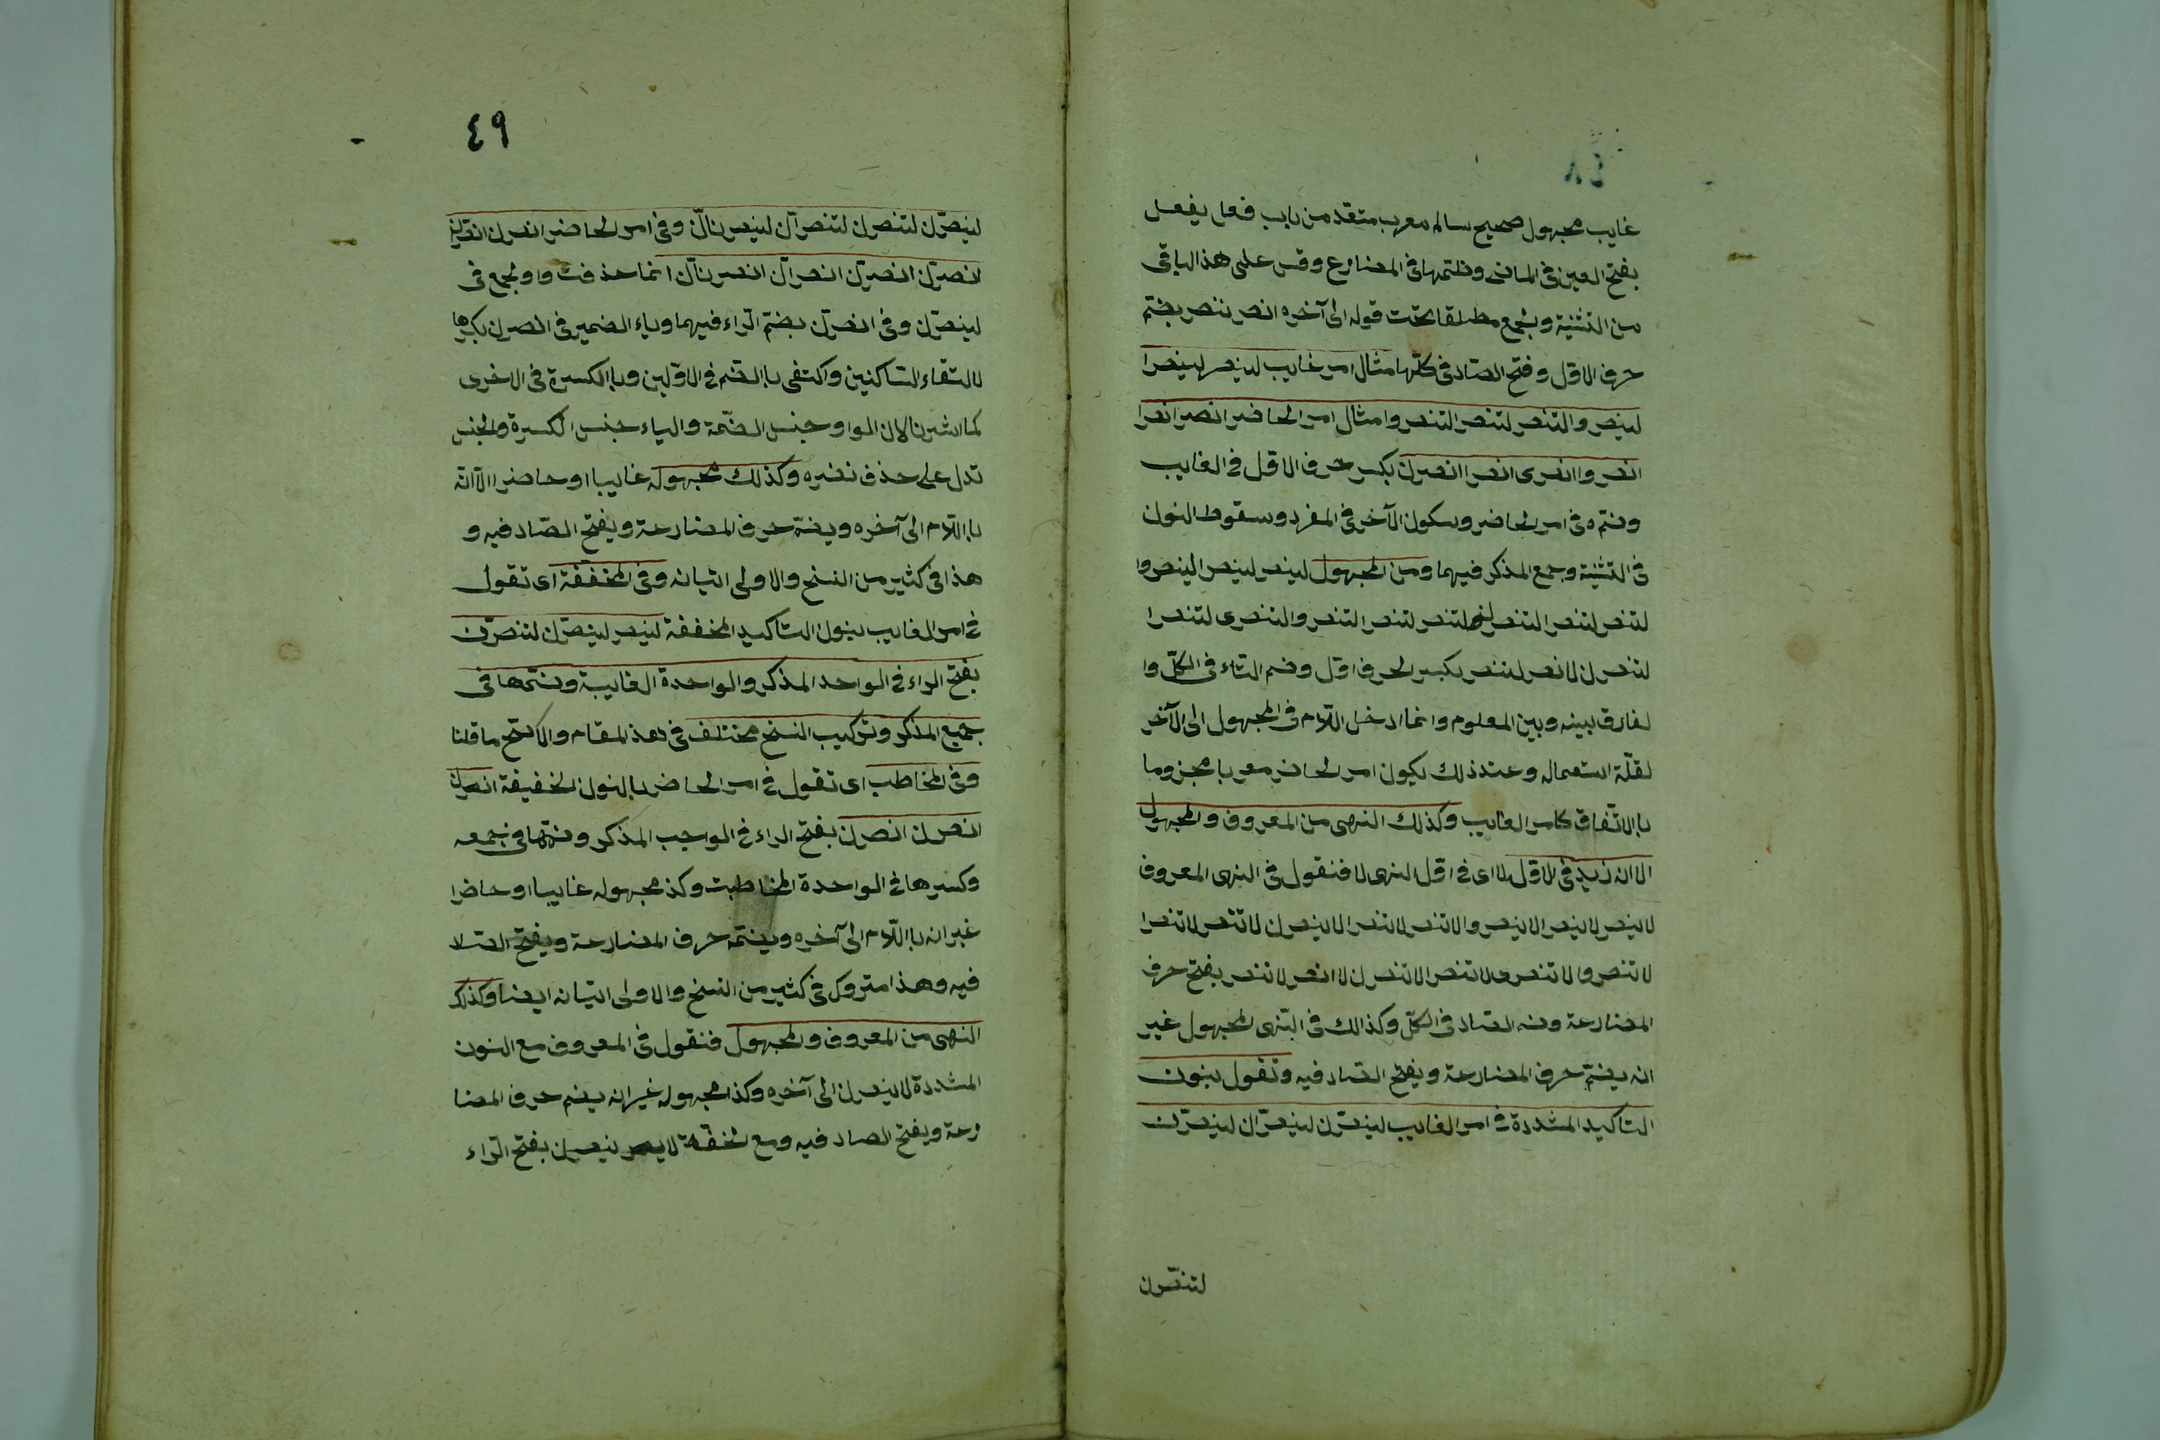 غايب مجهول صحيح سالم معرب متعد من باب فعل يفعل
بفتح العين فى الماضى وضمها فى المضارع وقس على هذا الباقى
من التثنية والجمع مطلقا تحت قوله الى آخره انصر ننصر بضم
حرف الاول وفتح الصاد فى كلها مثال امر غايب لينصر لينصرا
لينصروا لتنصر لتنصرا لتنصروا مثال امر الحاضر انصر انصرا
انصروا انصرى انصرا انصرن بكسر حرف الاول فى الغايب
وضمه فى امر الحاضر وسكون الآخر فى المفرد وسقوط النون
فى التثنية وجمع المذكر فيهما ومن المجهول لينصر لينصرا لينصروا
لتنصر لتنصرا لتنصر لتنصرا لتنصروا لتنصرى لتنصرا
لتنصرن لانصر لننصر بكسر الحرف اول وضم التاء فى الكل وا
لفارق بينه وبين المعلوم وانما ادخل اللام فى المجهول الى الآخر
لقلة استعماله وعند ذلك يكون امر الحاضر معربا مجزوما
بالاتفاق كامر الغايب وكذلك النهى من المعروف والمجهول
الا انه زيد فى الاول لا اى فى اول النهى لا فنقول فى النهى المعروف
لا ينصر لا ينصرا لا ينصروا لا تنصر لا تنصرا لا ينصرن لا تنصر لا تنصرا
لا تنصروا لا تنصرى لا تنصرا لا تنصرن لا انصر لا ننصر بفتح حرف
المضارعة وضم الصاد فى الكل وكذالك فى النهى المجهول غير
انه يضم حرف المضارعة ويفتح الصاد فيه وتقول بنون
التاكيد المشددة فى امر الغايب لينصرن لينصران لينصرن
لتنصرن
٤٩
لينصرن لتنصرن لتنصران لينصرنان وفى امر الحاضر انصرن انصران
انصرن انصرن انصران انصرنان انما حذفت واو الجمع فى
لينصرن وفى انصرن بضم الراء فيهما وياء الضمير فى انصرن بكسرها
لالتقاء الساكنين واكتفى بالضم فى الاولين وبالكسرة فى الاخرى
لان الواو جنس الضمة والياء جنس الكسرة والجنس
تدل على حذف نضيره وكذلك مجهوله غايبا او حاضرا الا انه
باللام الى آخره ويضم حرف المضارعة ويفتح الصاد فيه و
هذا فى كثير من النسخ والاولى اتيانه وفى المخففة اى تقول
فى امر الغايب بنون التاكيد المخففة لينصرن لتنصرن
بفتح الراء فى الواحد المذكر والواحدة الغايبة وضمها فى
جميع المذكر وتركيب النسخ مختلف فى هذ المقام والاصح ما قلنا
وفى المخاطب اى تقول فى امر الحاضر بالنون الخفيفة انصرن
انصرن انصرن بفتح الراء فى الواجب المذكر وضمها فى جمعه
وكسرها فى الواحدة المخاطبت وكذ مجهوله غايبا او حاضرا
غير انه باللام الى آخره ويضم حرف المضارعة ويفتح
فيه وهذا متروك فى كثير من النسخ والاولى اتيانه ايضا وكذلك
النهى من المعروف والمجهول فنقول فى المعروف مع النون
المشددة لا ينصرن الى آخره وكذا مجهوله غير انه يضم حرف المضا
رعة ويفتح الصاد فيه ومع الخففة ينصرن بفتح الراء